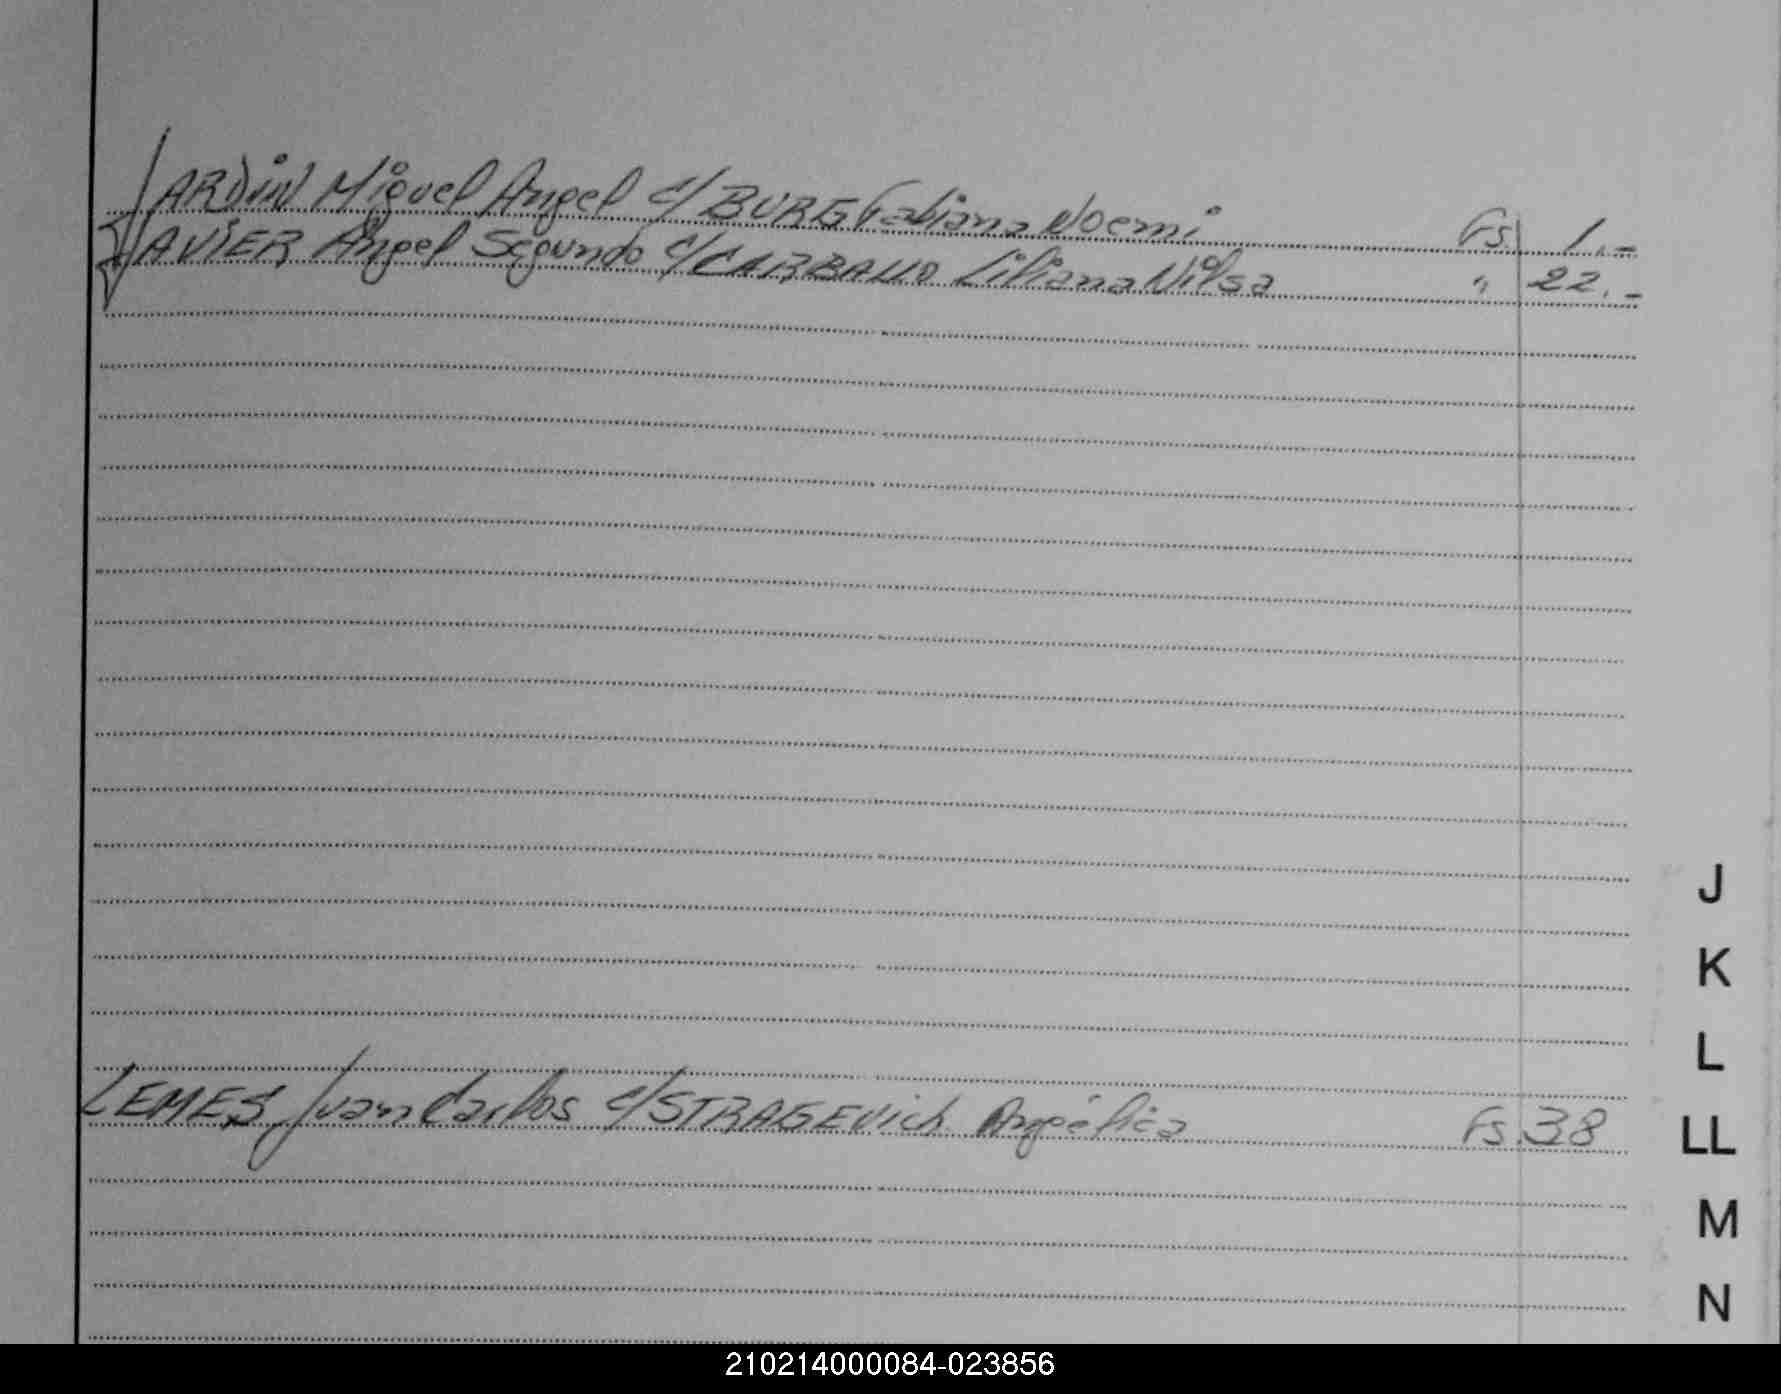 JARDIN Miguel Angel c/ BURG Fabiana Noemi Fs. 1.-
JAVIER Angel Segundo c/ CARBALLO Liliana Nilsa " 22.-
J
K
L
LEMES Juan Carlos c/ STRAGEVich Angélica Fs. 38
LL
M
N
210214000084-023856